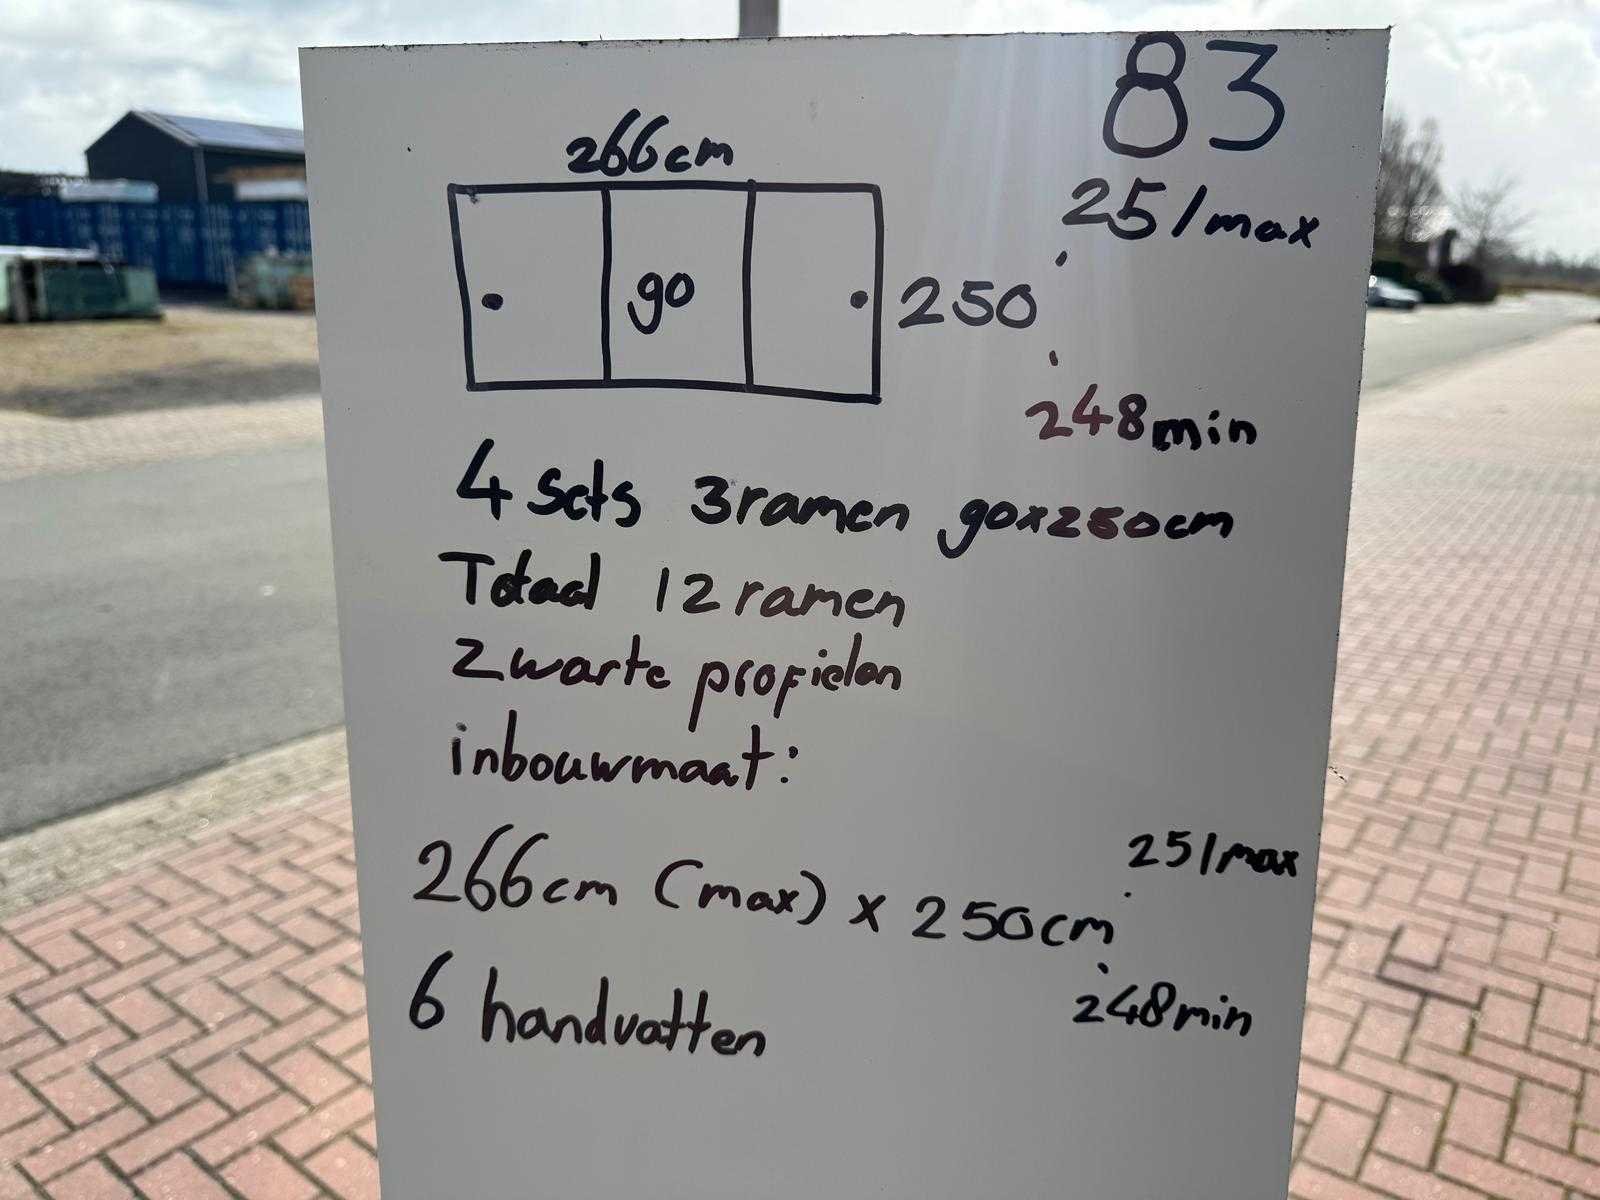 83
266cm
251max
90
250
248min
4 sets 3ramen 90x250cm
Totaal 12 ramen
Zwarte profielen
inbouwmaat:
251max
266cm (max) x 250cm
248min
6 handvatten